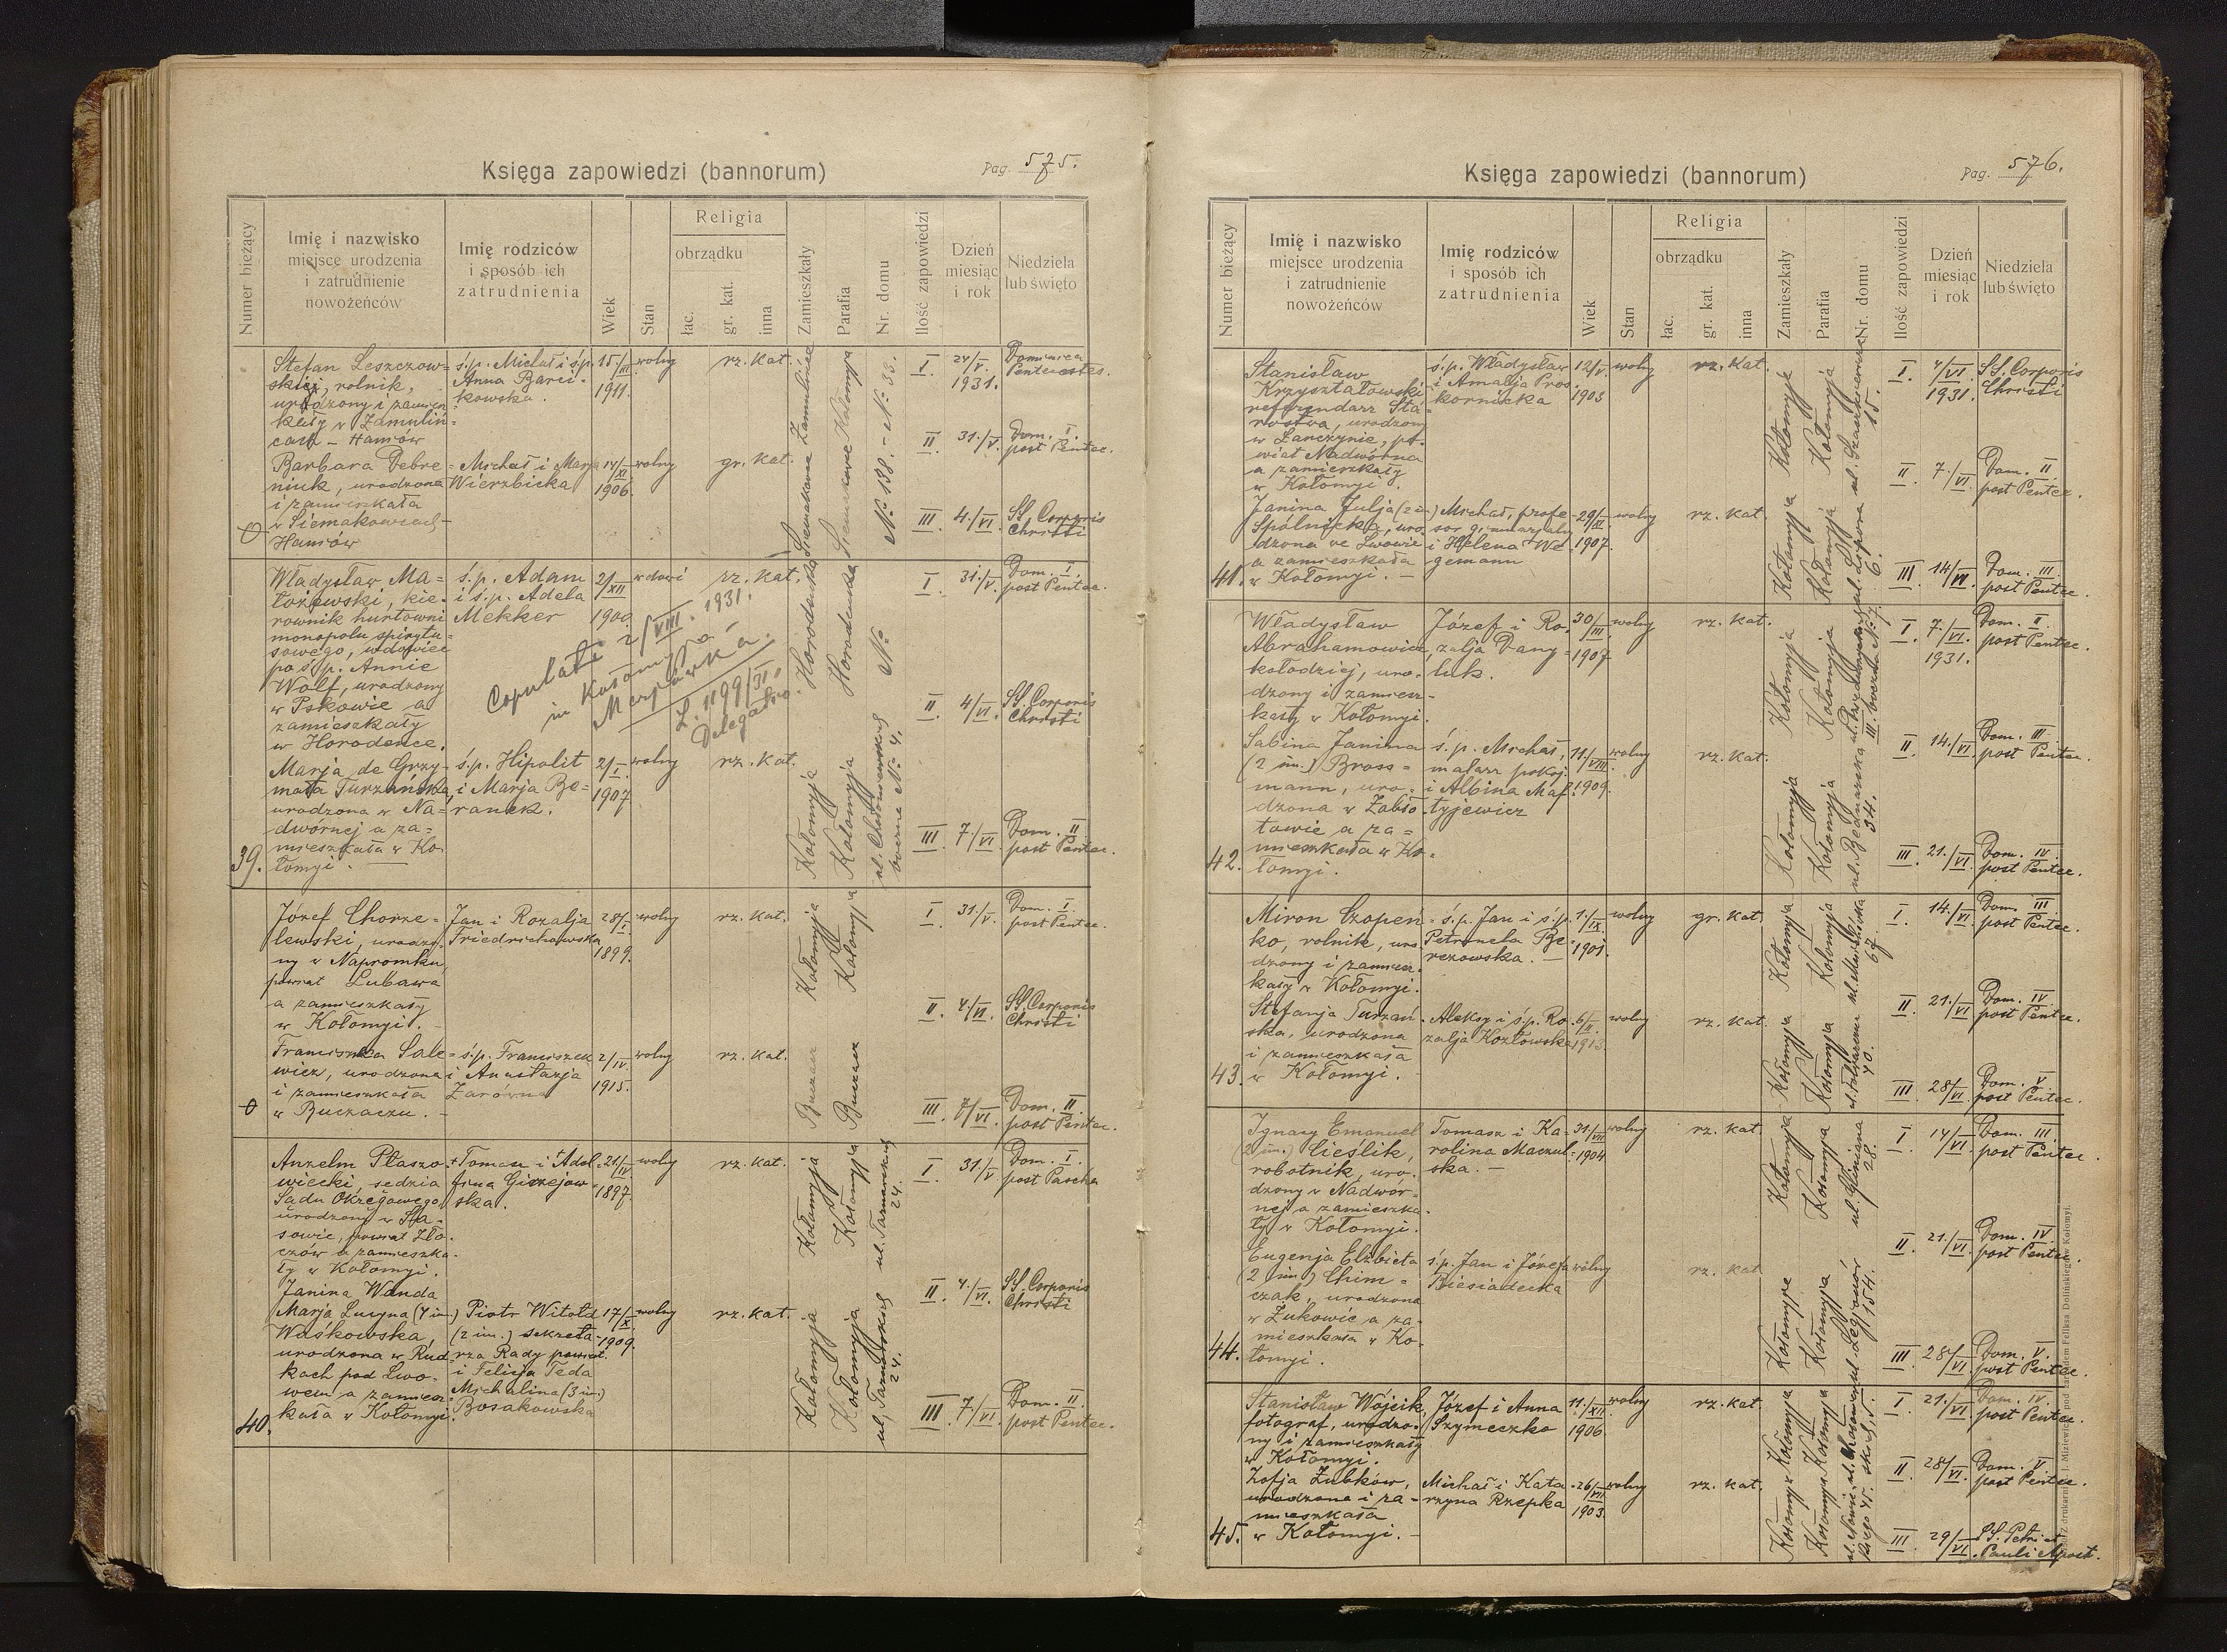 Księga zapowiedzi (bannorum)
Pag. 575.
Numer bieżący
Imię i nazwisko
miejsce urodzenia
i zatrudnienie
nowożeńców
Imię rodziców
i sposób ich
zatrudnienia
Wiek
Stan
Religia
obrządku
łac.
gr. kat.
inna
Zamieszkały
Parafia
Nr. domu
Ilość zapowiedzi
Dzień
miesiąc
i rok
Niedziela
lub święto
0
Stefan Leszczow=
skij, rolnik,
urodzony i zamiesz
kały w Zamuliń=
cach - Hańków
ś.p. Michał i ś.p.
Anna Barci=
kowska.
15/III 1911.
wolny
rz. kat.
Zamulińce
Kołomyja
No 33.
I. 24/V. 1931. Dominica Pentecostes.
II 31./V. Dom. I. post Pentec.
III 4./VI. SS. Corporis Christi
Barbara Debre=
niuk, urodzona
i zamieszkała
w Siemakowcach-
Hańków
Michał i Marja
Wierzbicka
14/XI 1906.
wolny
gr. kat.
Siemakowce
Siemakowce
No 138.-
39.
Władysław Ma=
łożewski, kie=
rownik hurtowni
monopolu spirytu=
sowego, wdowiec
po ś.p. Annie
Wolf, urodzony
w Pskowie a
zamieszkały
w Horodence.
ś.p. Adam
i ś.p. Adela
Mekker
2/XII 1900.
wdowi
rz. kat.
Horodenka
Horodenka
No
Copulati 2/VIII. 1931.
in Kołomyja
L. 1199/31.
Delegatio.
I 31./V. Dom. I. post Pentec.
II. 4/VI. SS. Corporis Christi
III 7./VI. Dom. II post Pentec.
Marja de Grzy=
mała Turzańska,
urodzona w Na=
dwórnej a za=
mieszkała w Ko
łomyi.
ś.p. Hipolit
i Marja Be=
ranek.
2/I. 1907
wolny
rz. kat.
Kołomyja
Kołomyja
0
Józef Chorze=
lewski, urodzo=
ny w Napromku,
powiat Lubawa
a zamieszkały
w Kołomyi.
Jan i Rozalja
Friedrichowska
28/I. 1899.
wolny
rz. kat.
Kołomyja
Kołomyja
I 31./V. Dom. I. post Pentec.
II. 4./VI. SS. Corporis Christi
III. 7/VI. Dom. II. post Pentec.
Franciszka Sale=
wicz, urodzona
i zamieszkała
w Buczaczu.
ś.p. Franciszek
i Anastazja
Żarówna
2/IV. 1915.
wolny
rz. kat.
Buczacz
Buczacz
40.
Anzelm Płaszo=
wiecki, sędzia
Sądu Okręgowego
urodzony w Sta=
sowie, powiat Zło=
czów a zamieszka=
ły w Kołomyi.
Tomasz i Adol=
fina Giżejow=
ska.
21/IV. 1897.
wolny
rz. kat.
Kołomyja
Kołomyja
ul. Tarnowskich 24.
I 31./V Dom. I. post Pascha
II 4./VI. SS. Corporis Christi
III. 7./VI. Dom. II. post Pentec.
Janina Wanda
Marja Lucyna (4 im.)
Waśkowska,
urodzona w Rud=
kach pod Lwo=
wem a zamiesz
kała w Kołomyi.
Piotr Witold
(2 im.) sekreta=
rza Rady powiat.
i Felicja Teda
Michalina (3 im.)
Bosakowska
17/X. 1909.
wolny
rz. kat.
Kołomyja
Kołomyja
ul. Tarnowskich 24.
Księga zapowiedzi (bannorum)
Pag. 576.
Numer bieżący
Imię i nazwisko
miejsce urodzenia
i zatrudnienie
nowożeńców
Imię rodziców
i sposób ich
zatrudnienia
Wiek
Stan
Religia
obrządku
łac.
gr. kat.
inna
Zamieszkały
Parafia
Nr. domu
Ilość zapowiedzi
Dzień
miesiąc
i rok
Niedziela
lub święto
41.
Stanisław
Krzyształowski
referendarz Sta=
rostwa, urodzony
w Łanczynie, po=
wiat Nadwórna
a zamieszkały
w Kołomyi.
ś.p. Władysław
i Amalja Pros=
kornicka
12/V. 1903
wolny
rz. kat.
Kołomyja
Kołomyja
I. 4/VI. 1931. SS. Corporis Christi
II. 7./VI. Dom. II post Pentec.
III 14/VI. Dom. III post Pentec.
Janina Julja (2 im.)
Spólnicka, uro=
dzona we Lwowie
a zamieszkała
w Kołomyi.-
Michał, profe=
sor gimnazjalny
i Helena We=
gemann
29/XI. 1907.
wolny
rz. kat.
Kołomyja
Kołomyja
6.
42.
Władysław
Abrahamowicz,
kołodziej, uro=
dzony i zamiesz=
kały w Kołomyi.
Józef i Ro=
zalja Dany=
luk.
30/III. 1907
wolny
rz. kat.
Kołomyja
Kołomyja
I. 7./VI. 1931. Dom. II. post Pentec.
II. 14./VI. Dom. III post Pentec.
III. 21./VI. Dom. IV. post Pentec.
Sabina Janina
(2 im.) Bross=
mann, uro=
dzona w Zabło=
towie a za=
mieszkała w Ko=
łomyi.
ś.p. Michał,
malarz pokoj.
i Albina Maf=
tyjewicz
11/VIII. 1909.
wolny
rz. kat.
Kołomyja
Kołomyja
ul. Bednarska 34.
43.
Miron Czopeń=
ko, rolnik, uro=
dzony i zamiesz=
kały w Kołomyi.
ś.p. Jan i ś.p.
Petronela Be=
rezowska.
1./IX. 1901.
wolny
gr. kat.
Kołomyja
Kołomyja
67.
I. 14./VI. Dom. III post Pentec.
II 21./VI. Dom. IV. post Pentec.
III 28/VI. Dom. V. post Pentec.
Stefanja Turzań=
ska, urodzona
i zamieszkała
w Kołomyi.
Aleksy i ś.p. Ro=
zalja Kozłowska
6/II. 1913.
wolny
rz. kat.
Kołomyja
Kołomyja
40.
44.
Ignacy Emanuel
(2 im.) Cieślik,
robotnik, uro=
dzony w Nadwór=
nej a zamieszka=
ły w Kołomyi.
Tomasz i Ka=
rolina Maczul=
ska.-
31./VII 1904
wolny
rz. kat.
Kołomyja
Kołomyja
ul. Gliniana 28.
I 14/VI. Dom. III. post Pentec.
II. 21./VI. Dom. IV. post Pentec.
III 28/VI. Dom. V. post Pentec.
Eugenja Elżbieta
(2 im.) Chim=
czak, urodzona
w Żukowie a za=
mieszkała w Ko=
łomyi.
ś.p. Jan i Józefa
Biesiadecka
wolny
rz. kat.
Kołomyja
Kołomyja
ul. Legjonów 154.
45.
Stanisław Wójcik,
fotograf, urodzo=
ny i zamieszkały
w Kołomyi.
Józef i Anna
Szymeczko
11./XII. 1906.
wolny
rz. kat.
Kołomyja
Kołomyja
I 21./VI. Dom. IV. post Pentec.
II 28/VI. Dom. V. post Pentec.
III 29/VI. SS. Petri et Pauli Apost.
Zofja Zubków,
urodzona i za=
mieszkała
w Kołomyi.-
Michał i Kata=
rzyna Rzepka
26/VII 1903.
wolny
rz. kat.
Kołomyja
Kołomyja
Z drukarni J. Miziewicza pod zarządem Feliksa Dolińskiego w Kołomyi.